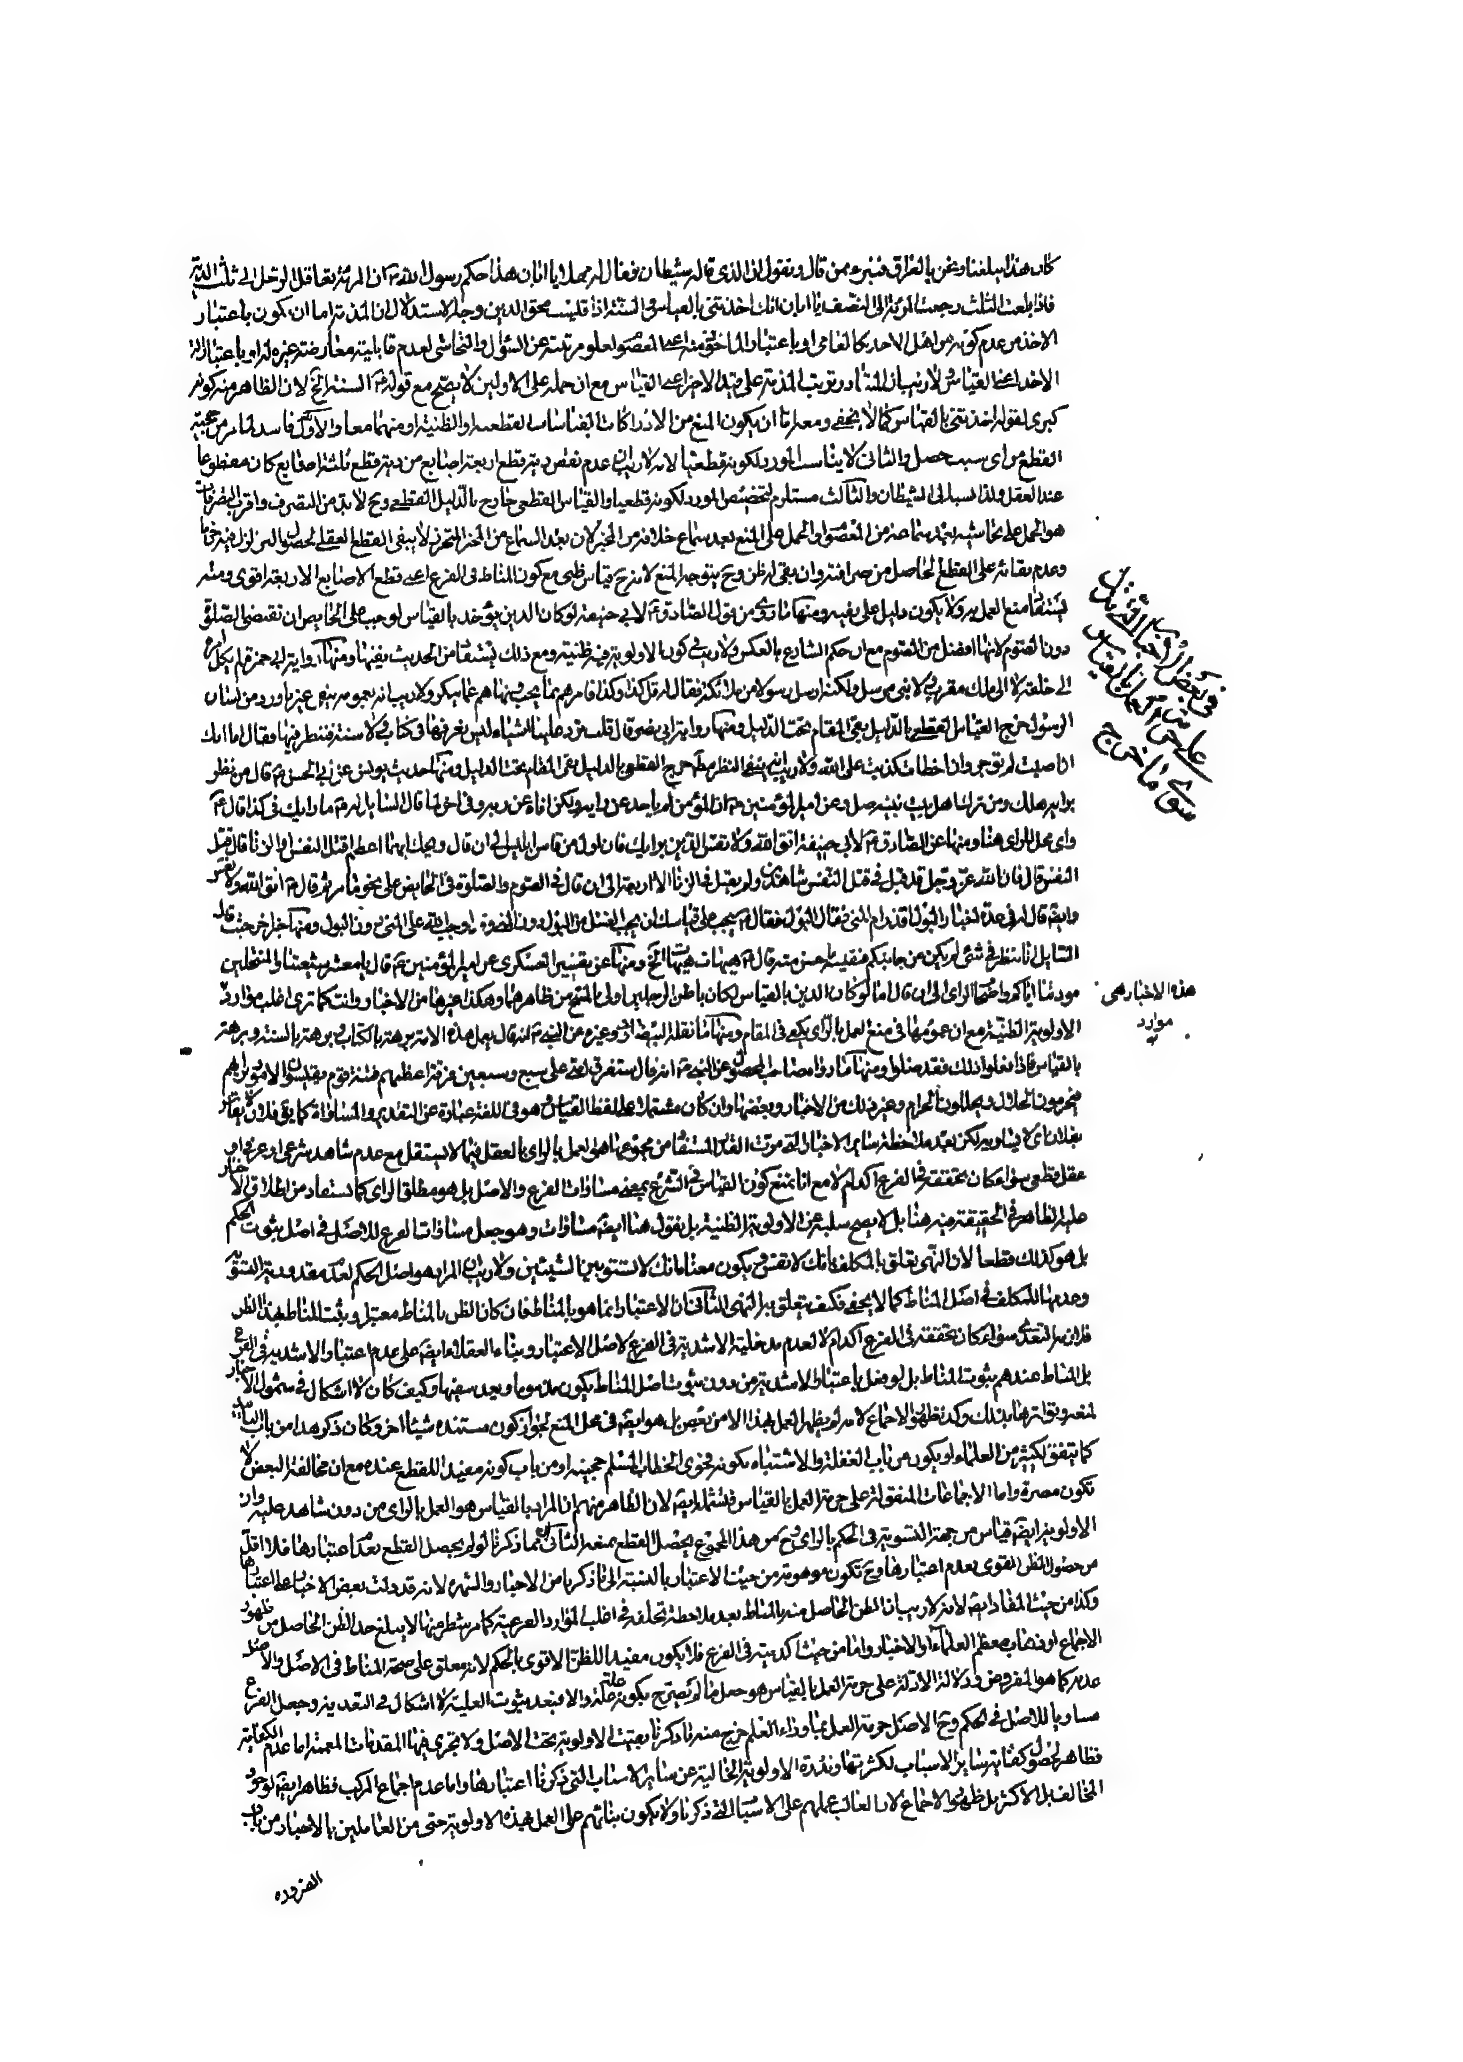 كان هذا يبلغنا ونحن بالعراق فنبرء ممن قال ونقول ان الذى قاله شيطان فقال له مهلا يا ابان هذا حكم رسول الله ان المرئة تعاقل الرجل الى ثلث الدية
فاذا بلغت الثلث رجعت المرئة الى النصف يا ابان انك اخذتنى بالقياس والسنة اذا قيست محق الدين وجه الاستدلال ان المذمة اما ان يكون باعتبار
الاخذ من عدم كونه من اهل الاخذ كالعامى او باعتبار الماخوذ منه اعنى المعصوم لعلو مرتبته عن السؤال والتحاشى لعدم قابليته معارضة غيره له او باعتبار الة
الاخذ اعنى القياس ولا ريب ان المتبادر ترتب المذمة على قيد الاخير اعنى القياس مع ان حمله على الاولين لا يصح مع قوله السنة الخ لان الظاهر منه كونه
كبرى لقوله اخذتنى بالقياس كما لا يخفى ومعه اما ان يكون المنع من الادراكات القياسات القطعية او الظنية او منهما معا والاول فاسد لما مر من حجية
القطع من اى سبب حصل والثانى لا يناسب المورد لكونه قطعيا لانه لا ريب ان عدم نقص دية قطع اربعة اصابع من دية قطع ثلثة اصابع كان مقطوعا
عند العقل ولذا نسبه الى الشيطان والثالث مستلزم لتخصيص المورد لكونه قطعيا والقياس القطعى خارج بالدليل القطعى وح لا بد من التصرف واقرب التصرفات
هو الحمل على تحاشيه بعد سماعه من المعصوم او الحمل على المنع بعد سماع خلافه من المخبر لان بعد السماع من المخبر لا يبقى القطع العقلى لحصول التزلزل فيه
وعدم بقائه على القطع الحاصل من صرافته وان بقى له ظن وح يتوجه المنع لانه ح قياس ظنى مع كون المناط فى الفرع اعنى قطع الاصابع الاربعة اقوى ومنه
يستفاد منع العمل به ولا يكون دليل على نفيه ومنها ما روى من قول الصادق لابى حنيفة لو كان الدين يؤخذ بالقياس لوجب على الحائض ان تقضى الصلوة
دون الصوم لانها افضل من الصوم مع ان حكم الشارع بالعكس ولا ريب فى كون الاولوية فيه ظنية ومع ذلك يستفاد من الحديث نفيها ومنها رواية ابى حمزة
الى خلقه لا الى ملك مقرب ولا نبى مرسل ولكنه ارسل رسولا من ملائكته فقال له قل كذا وكذا فامرهم بما يحب ونهاهم عما يكره ولا ريب انه بعمومه ينفى غير ما ورد من لسان
الرسول خرج القياس القطعى بالدليل بقى المقام تحت الدليل ومنها رواية ابى بصير قال قلت ترد علينا اشياء ليس نعرفها فى كتاب ولا سنة فننظر فيها فقال اما انك
ان اصبت لم توجر وان اخطات كذبت على الله ولا ريب انه ينفى النظر مطلقا خرج القطعى بالدليل بقى المقام تحت الدليل ومنها حديث يونس عن ابى الحسن قال من نظر
برايه هلك ومن ترك اهل بيت نبيه ضل وعن امير المؤمنين ان المؤمن لم ياخذ عن رايه ولكن اتاه عن ربه وفى اخر لما قال السائل له ما رايك فى كذا قال
واى محل للراى هنا ومنها عن الصادق لابى حنيفة اتق الله ولا تقس الدين برايك فان اول من قاس ابليس الى ان قال ويحك ايهما اعظم قتل النفس او الزنا قال قتل
النفس قال فان الله عز وجل قد قبل فى قتل النفس شاهدين ولم يقبل فى الزنا الا اربعة الى ان قال فى الصوم والصلوة فى الحائض على نحو ما مر ثم قال اتق الله ولا تقس
وايضا قال له فى عدة اخبار البول اقذر ام المنى فقال البول فقال يجب على قياسك ان يجب الغسل من البول دون المنى وقد اوجب الله على المنى دون البول ومنها خبر اخر حيث قال
السائل انا ننظر فى شئ لم يكن من جانبكم فنقيسه باحسن منه قال هيهات هيهات الخ ومنها عن تفسير العسكرى عن امير المؤمنين قال يا معشر شيعتنا والمنتحلين
مودتنا اياكم واصحاب الراى الى ان قال اما لو كان الدين بالقياس لكان باطن الرجلين اولى بالمسح من ظاهرهما وهكذا غيرها من الاخبار وانت كما ترى اغلب موارده
الاولوية الظنية مع ان عمومها فى منع العمل بالراى يكفى فى المقام ومنها ما نقله البيضاوى وغيره عن النبى انه قال يعمل هذه الامة برهة بالكتاب وبرهة بالسنة وبرهة
بالقياس فاذا فعلوا ذلك فقد ضلوا ومنها ما رواه صاحب المحصول عن النبى انه قال ستفرق امتى على بضع وسبعين فرقة اعظمهم فتنة قوم يقيسون الامور برايهم
فيحرمون الحلال ويحللون الحرام وغير ذلك من الاخبار وبعضها وان كان مشتملا على لفظ القياس وهو فى اللغة عبارة عن التقدير والمساواة كما يقال فلان لا يقاس
بفلان اى لا يساويه لكن بعد ملاحظة سائر الاخبار التى مرت القدر المستفاد من مجموعها هو العمل بالراى بالعقل فيما لا يستقل مع عدم شاهد شرعى او عرفى او
عقل قطعى سواء كان تحققه فى الفرع اكد ام لا مع انا نمنع كون القياس فى الشرع بمعنى مساوات الفرع والاصل بل هو مطلق الراى كما يستفاد من اطلاق الاخبار
عليه الظاهر فى الحقيقة فيه هنا بل لا يصح سلبه عن الاولوية الظنية بل نقول هنا ايضا مساوات وهو جعل مساوات الفرع للاصل فى اصل ثبوت الحكم
بل هو كذلك قطعا لان النهى تعلق بالمكلف بانك لا تقس ويكون معناه انك لا تستو بين الشيئين ولا ريب ان المراد هو اصل الحكم لعدم مقدورية التسوية
وعدمها للمكلف فى اصل المناط كما لا يخفى فكيف يتعلق به النهى الثانى ان الاعتبار انما هو بالمناط فان كان الظن بالمناط معتبرا ويثبت المناط بهذا الظن
فلا يضر التعدى سواء كان تحققه فى الفرع اكد ام لا لعدم مدخلية الاشدية فى الفرع لاصل الاعتبار وبناء العقلاء ايضا على عدم اعتبار الاشدية فى الفرع
بل المناط عندهم ثبوت المناط بل لو فعل باعتبار الاشدية من دون ثبوت اصل المناط يكون مذموما ويعد سفيها وكيف كان لا اشكال فى شمول الاخبار
لمنعه وتواترها بذلك وكذا ظهور الاجماع لانه لم يظهر العمل بهذا الا من بعض بل هو ايضا فى محل المنع لجواز كون مستنده شيئا اخر وكان ذكر هذا من باب التاييد
كما يتفق لكثير من العلماء او يكون من باب الغفلة والاشتباه بكونه فحوى الخطاب المسلم حجيته او من باب كونه مفيدا للقطع عنده مع ان مخالفة البعض لا
تكون مضرة واما الاجماعات المنقولة على حرمة العمل بالقياس فتشمله ايضا لان الظاهر منهم ان المراد بالقياس هو العمل بالراى من دون شاهد عليه وان
الاولوية ايضا قياس من جهة التسوية فى الحكم بالراى وح من هذا المجموع يحصل القطع بمنعه الثانى مما ذكرنا لو لم يحصل القطع بعدم اعتبارها فلا اقل
من حصول الظن القوى بعدم اعتبارها وح تكون موهومة من حيث الاعتبار بالنسبة الى ما ذكرنا من الاخبار والشهرة لانه قد دلت بعض الاخبار على اعتبارها
وكذا من حيث المفاد ايضا لانه لا ريب ان الظن الحاصل منه بالمناط بعد ملاحظة تخلفه فى اغلب الموارد الفرعية كما مر شطر منها لا يبلغ حد الظن الحاصل من ظهور
الاجماع او ذهاب معظم العلماء او الاخبار واما من حيث اكديته فى الفرع فلا يكون مفيدا للظن الاقوى بالحكم لانه معلق على صحة المناط فى الاصل والاصل
عدمه كما هو المفروض ودلالة الادلة على حرمة العمل بالقياس هو جعل ما لم يصرح بكونه علة علة والا فبعد ثبوت العلية لا اشكال فى التعدية وجعل الفرع
مساويا للاصل فى الحكم وح الاصل حرمة العمل بما وراء العلم خرج منه ما ذكرنا بقيت الاولوية تحت الاصل ولا تجرى فيها المقدمات المعممة اما عدم الكفاية
فظاهر لحصول كفاية سائر الاسباب لكثرتها وندرة الاولوية الخالية عن سائر الاسباب التى ذكرنا اعتبارها واما عدم اجماع المركب فظاهر ايضا لوجود
المخالف بل الاكثر بل ظهور الاجماع لان الغالب عملهم على الاسباب التى ذكرنا ولا يكون بنائهم على العمل بهذه الاولوية حتى من العاملين بالاخبار من باب
فى بعض
على حرمة العمل بالقياس
سوى ما خرج
هذه الاخبار هى
موارد